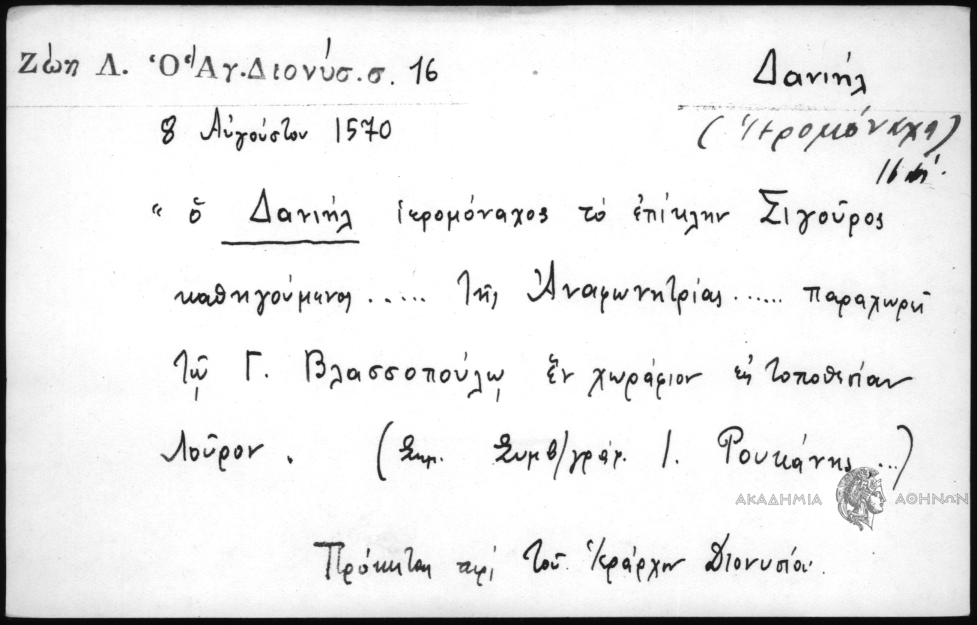 Ζώη Λ. Ὁ Ἁγ. Διονύσ. σ. 16
Δανιήλ
(Ἱερομόναχ)
8 Αὐγούστου 1570
" ὁ Δανιήλ ἱερομόναχος τὸ ἐπίκλην Σιγοῦρος
καθηγούμενος ..... τῆς Ἀναφωνητρίας ...... παραχωρεῖ
τῷ Γ. Βλασσοπούλῳ ἓν χωράφιον εἰς τοποθεσίαν
Λοῦρον. (Σημ. Συμβ/γράφ. Ι. Ρουκάνης ...)
ΑΚΑΔΗΜΙΑ ΑΘΗΝΩΝ
Πρόκειται περὶ τοῦ Ἱεράρχου Διονυσίου.